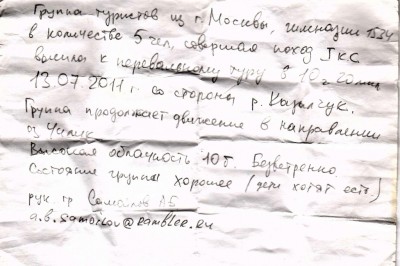 Группа туристов из г. Москвы, гимназии 1534
в количестве 5 чел, совершая поход I кс
вышла к перевальному туру в 10 ч 20 мин
13.07.2011 г. со стороны р. Казылчук.
Группа продолжает движение в направлении
оз Чилик
Высокая облачность 10 б. Безветренно.
Состояние группы хорошее (дети хотят есть)
рук гр Самойлов АБ
a.b.samoilov@rambler.ru